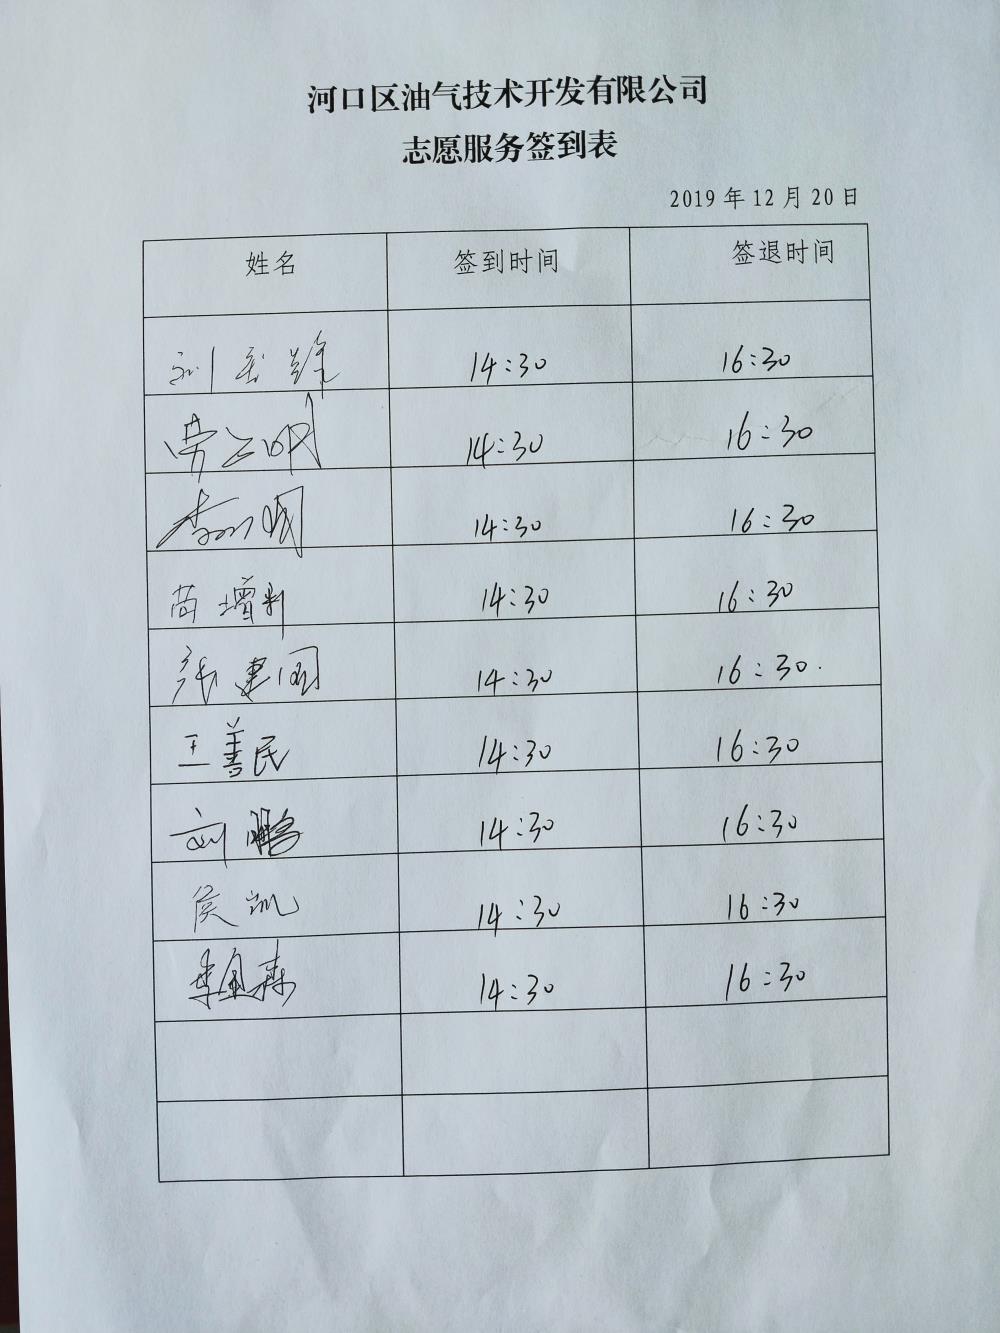 河口区油气技术开发有限公司
志愿服务签到表
2019年12月20日
姓名 签到时间 签退时间
刘 14:30 16:30
劳 明 14:30 16:30
李 国 14:30 16:30
苗增利 14:30 16:30
张建国 14:30 16:30.
王善民 14:30 16:30
刘鹏 14:30 16:30
侯凯 14:30 16:30
李 森 14:30 16:30